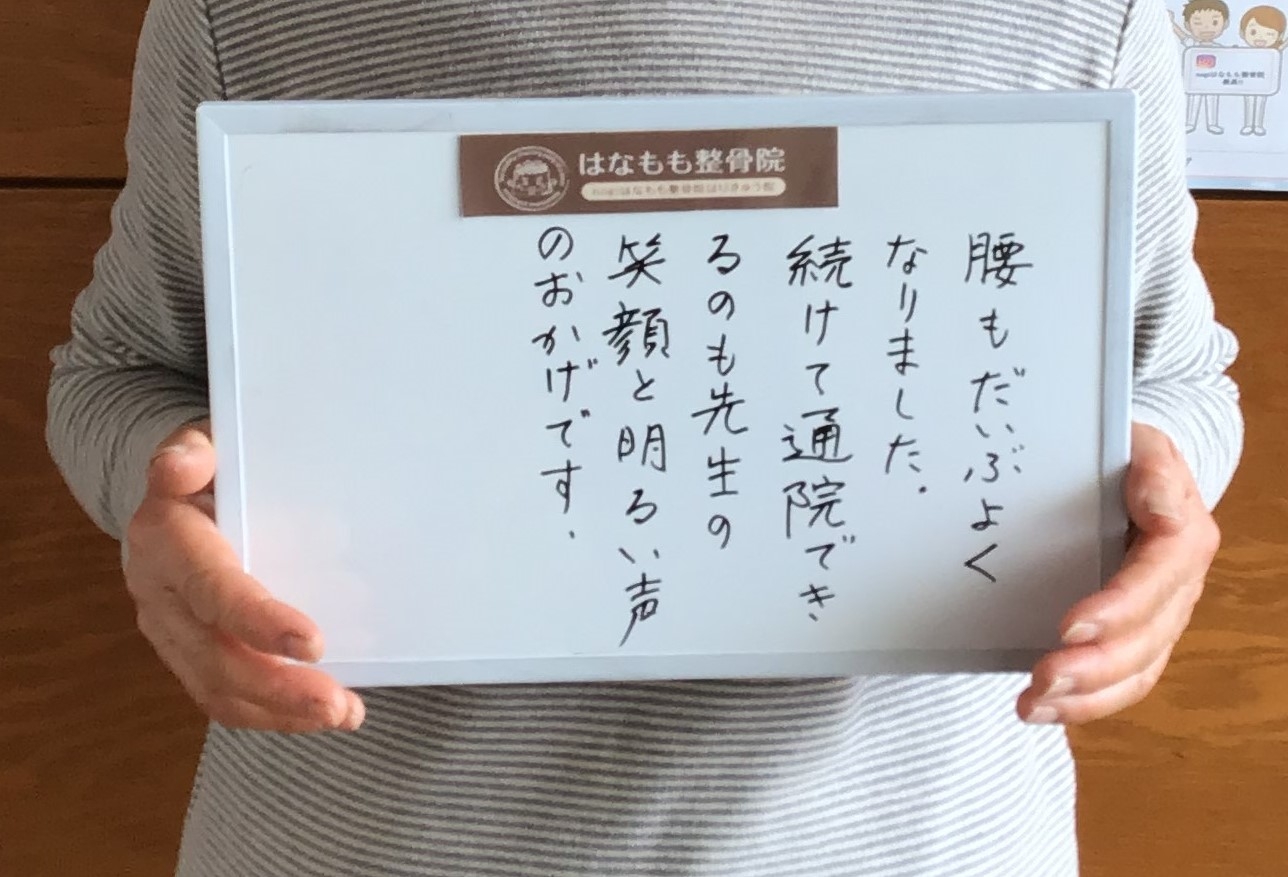 はなもも整骨院
nagiはなもも整骨院はりきゅう院
腰もだいぶよく
なりました.
続けて通院でき
るのも先生の
笑顔と明るい声
のおかげです.